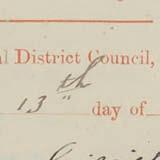 l District Council,
13th day of